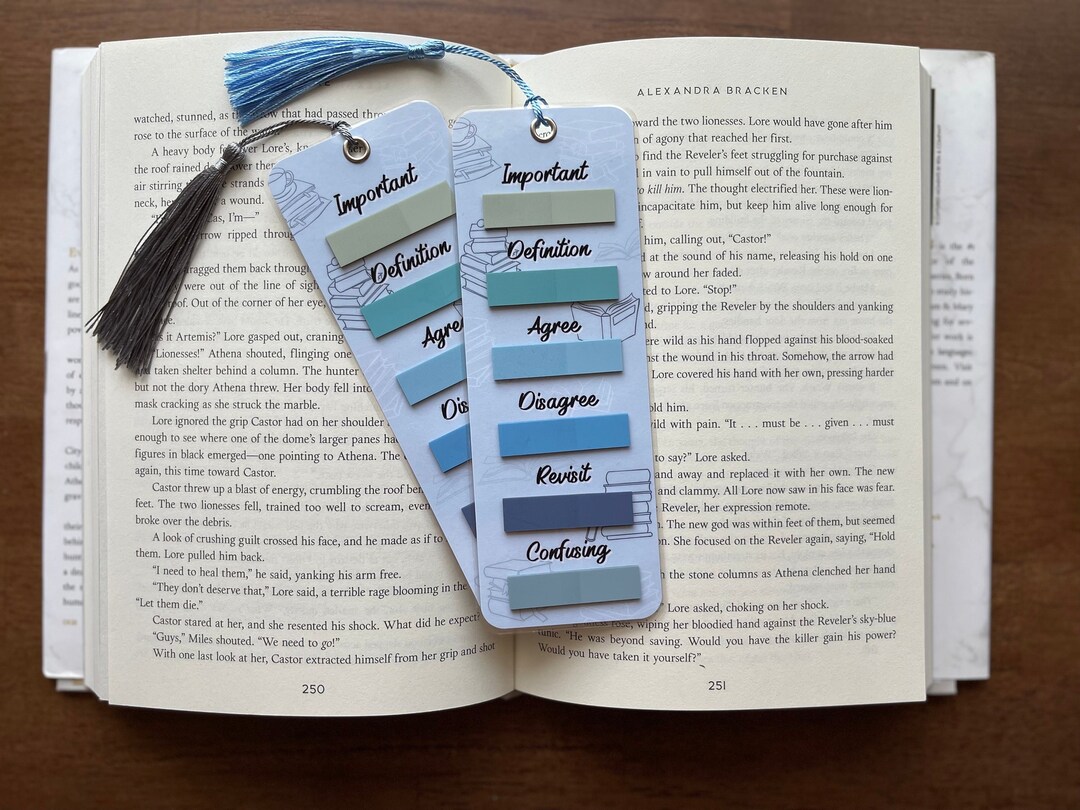 watched, stunned, as the
that had passed
rose to the surface of the
A heavy body
over Lore's,
the roof rained
over
air stirring
strands
neck, her
a wound.
Cas, I'm—"
rrow ripped through
ragged them back through
were out of the line of sigh
of. Out of the corner of her eye,
it Artemis?" Lore gasped out, craning
Lionesses!" Athena shouted, flinging one
taken shelter behind a column. The hunter
but not the dory Athena threw. Her body fell into
mask cracking as she struck the marble.
Lore ignored the grip Castor had on her shoulder
enough to see where one of the dome's larger panes had
figures in black emerged—one pointing to Athena. The
again, this time toward Castor.
Castor threw up a blast of energy, crumbling the roof ben
feet. The two lionesses fell, trained too well to scream, even
broke over the debris.
A look of crushing guilt crossed his face, and he made as if to
them. Lore pulled him back.
"I need to heal them," he said, yanking his arm free.
"They don't deserve that," Lore said, a terrible rage blooming in the
"Let them die."
Castor stared at her, and she resented his shock. What did he expect?
"Guys," Miles shouted. "We need to go!"
With one last look at her, Castor extracted himself from her grip and shot
250
Important
Definition
Agre
Dis
Important
Definition
Agree
Disagree
Revisit
Confusing
ALEXANDRA BRACKEN
ward the two lionesses. Lore would have gone after him
n of agony that reached her first.
find the Reveler's feet struggling for purchase against
in vain to pull himself out of the fountain.
to kill him. The thought electrified her. These were lion-
incapacitate him, but keep him alive long enough for
him, calling out, "Castor!"
at the sound of his name, releasing his hold on one
w around her faded.
ted to Lore. "Stop!"
, gripping the Reveler by the shoulders and yanking
nd.
ere wild as his hand flopped against his blood-soaked
nst the wound in his throat. Somehow, the arrow had
Lore covered his hand with her own, pressing harder
old him.
ild with pain. "It . . . must be . . . given . . . must
to say?" Lore asked.
and away and replaced it with her own. The new
and clammy. All Lore now saw in his face was fear.
Reveler, her expression remote.
. The new god was within feet of them, but seemed
n. She focused on the Reveler again, saying, "Hold
h the stone columns as Athena clenched her hand
" Lore asked, choking on her shock.
rose, wiping her bloodied hand against the Reveler's sky-blue
tunic. "He was beyond saving. Would you have the killer gain his power?
Would you have taken it yourself?"
251